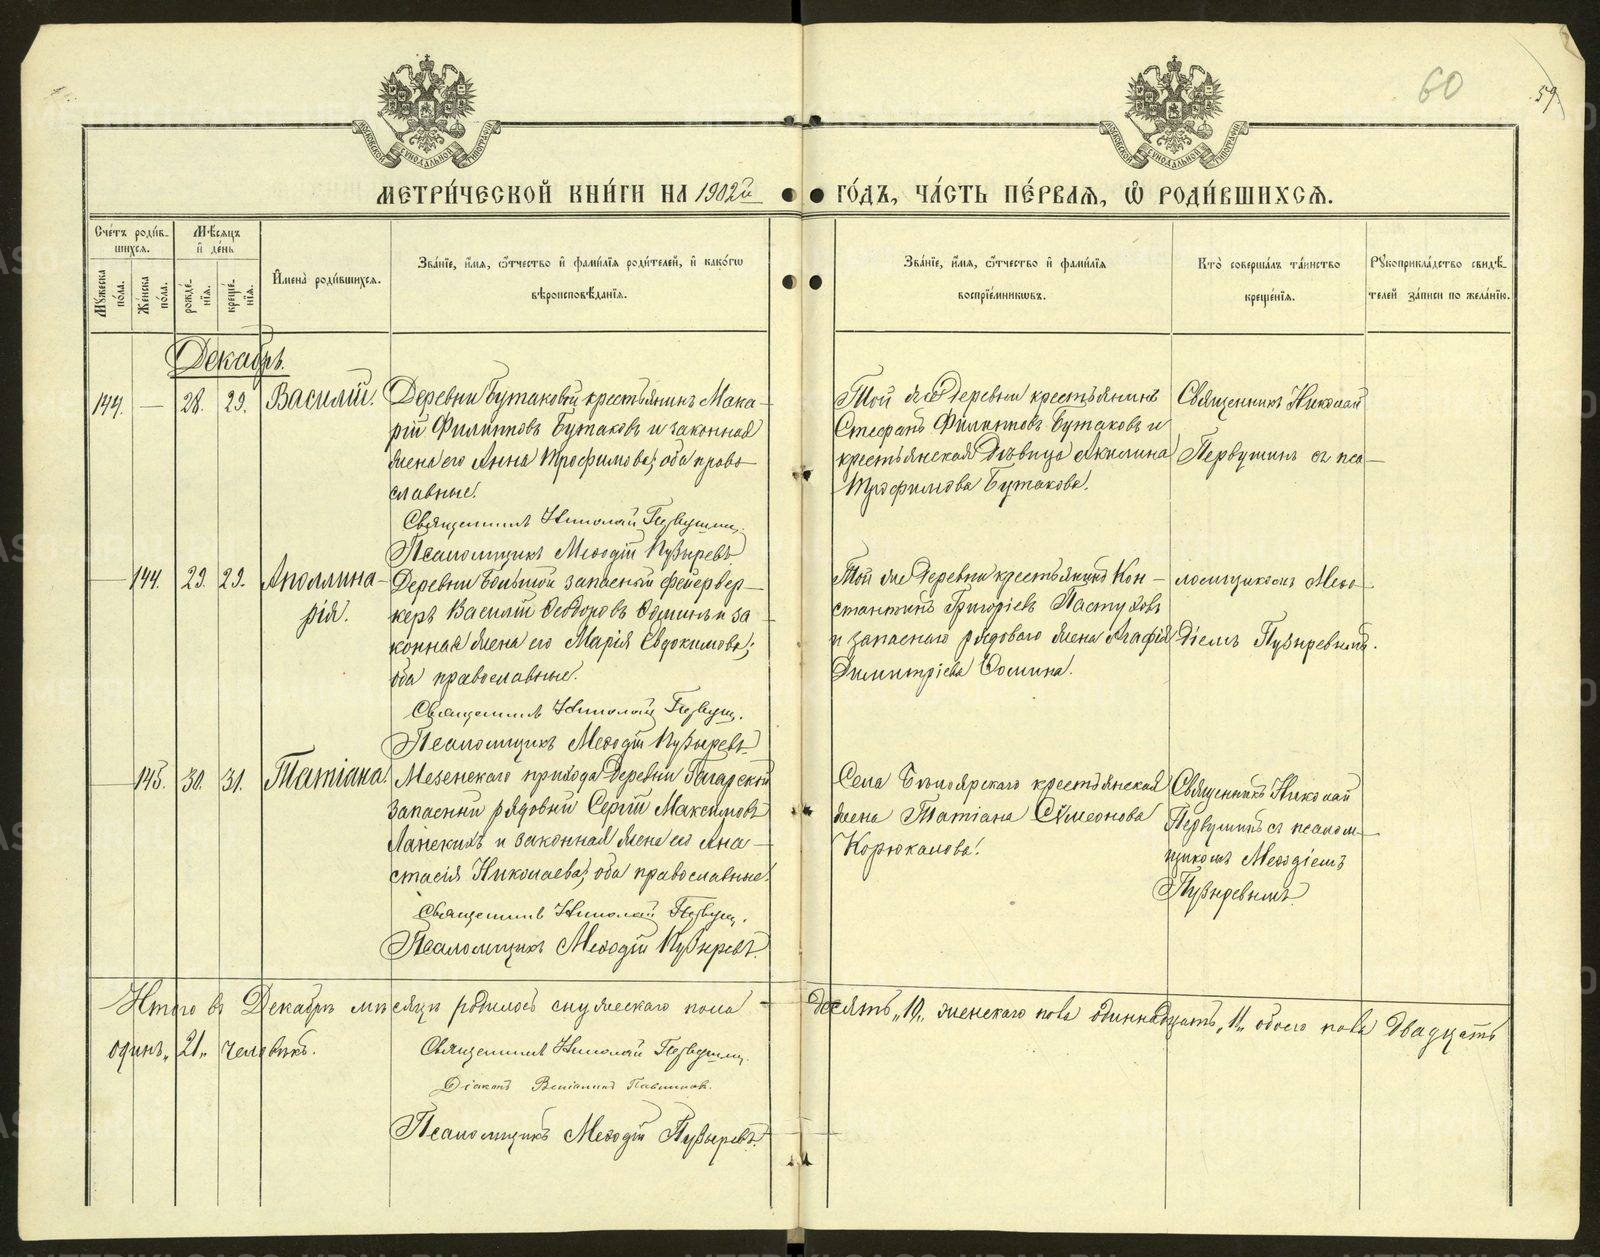 60
59
МЕТРИ́ЧЕСКОЙ КНИ́ГИ НА 1902й
ГО́ДЪ, ЧА́СТЬ ПЕ́РВАЯ, Ѿ РОДИ́ВШИХСЯ.
МОСКОВСКОЙ СѴНОДАЛЬНОЙ ТИПОГРАФІИ
МОСКОВСКОЙ СѴНОДАЛЬНОЙ ТИПОГРАФІИ
Сче́тъ роди́в-
шихся.
Мѣ́сяцъ
и҆ де́нь
Мꙋ́жеска
по́ла.
Же́нска
по́ла.
рожде́-
нїя.
креще́-
нїя.
И҆мена̀ роди́вшихся.
Зва́нїе, и҆́мя, ѻ҆́тчество и҆ фами́лїя роди́телей, и҆ како́гѡ
вѣроисповѣ́данїя.
Зва́нїе, и҆́мя, ѻ҆́тчество и҆ фами́лїя
воспрїе́мникѡвъ.
Кто̀ соверша́лъ та́инство
креще́нїя.
Рꙋкоприкла́дство свидѣ́-
телей за́писи по жела́нїю.
Декабрь.
144. — 28. 29. Василій.
Деревни Бутаковой крестьянинъ Мака-
рій Филипповъ Бутаковъ и законная
жена его Анна Трофимова; оба право-
славные.
Священникъ Николай Первушин.
Псаломщикъ Меѳодій Пузыревъ
Той же деревни крестьянинъ
Стефанъ Филипповъ Бутаковъ и
крестьянская дѣвица Акилина
Трофимова Бутакова.
Священникъ Николай
Первушинъ съ пса-
— 144. 29. 29. Аполлина-
рія.
Деревни запасный фейервер-
керъ Василій Ѳеодоровъ и за-
конная жена его Марія Евдокимова;
оба православные.
Священникъ Николай Первуш.
Псаломщикъ Меѳодій Пузыревъ
Той же деревни крестьянинъ Кон-
стантинъ Григоріевъ Пастуховъ
и запаснаго рядоваго жена Агафія
Димитріева
ломщикомъ Меѳо-
діемъ Пузыревымъ.
— 145. 30. 31. Татіана.
Мезенскаго прихода деревни Гагарской
запасный рядовый Сергій Максимовъ
Ланскихъ и законная жена его Ана-
стасія Николаева; оба православные.
Священникъ Николай Первуш.
Псаломщикъ Меѳодій Пузыревъ.
Села Бѣлоярскаго крестьянская
жена Татіана Сѵмеонова
Корюкалова.
Священникъ Николай
Первушинъ съ псалом-
щикомъ Меѳодіемъ
Пузыревымъ.
Итого въ Декабрѣ мѣсяцѣ родилось мужескаго пола - десять „10„ женскаго пола одиннадцать „11„ обоего пола двадцать
одинъ „21„ человѣкъ.
Священникъ Николай Первушин.
Діаконъ Веніаминъ
Псаломщикъ Меѳодій Пузыревъ.